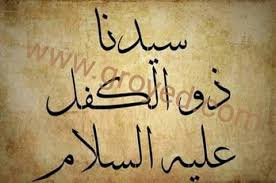 سيدنا
ذو الكفل
عليه السلام
www.groyed.com